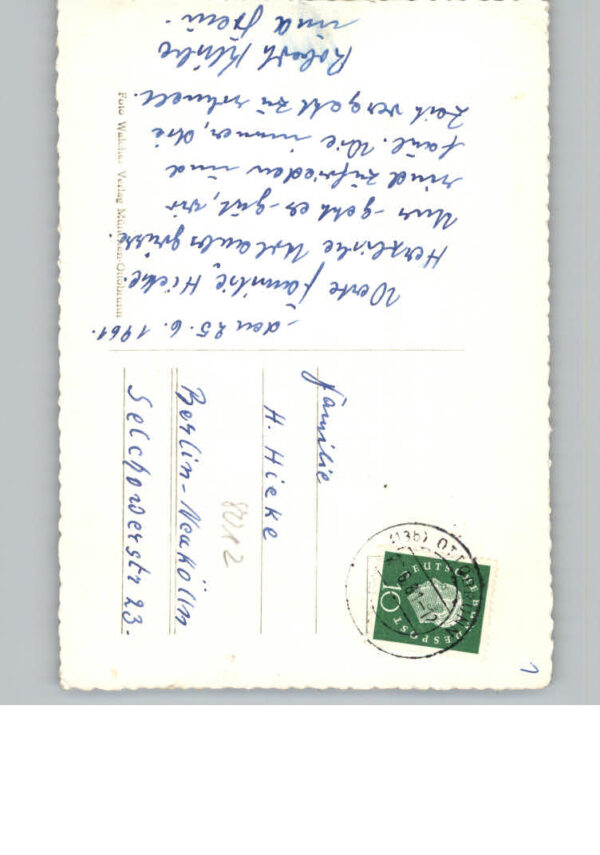 den 25.6.1961.
Werte Familie Hieke.
Herzliche Urlaubsgrüsse
Uns geht es gut, wir
sind zufrieden und
faul. Wie immer, die
Zeit vergeht zu schnell.
Robert
und Frau.
Foto Walcher Verlag München-Ottobrunn
Familie
H. Hieke
Berlin-Neukölln
Selchowerstr 23.
8012
DEUTSCHE BUNDESPOST
10
(13b) OTTOBRUNN
1